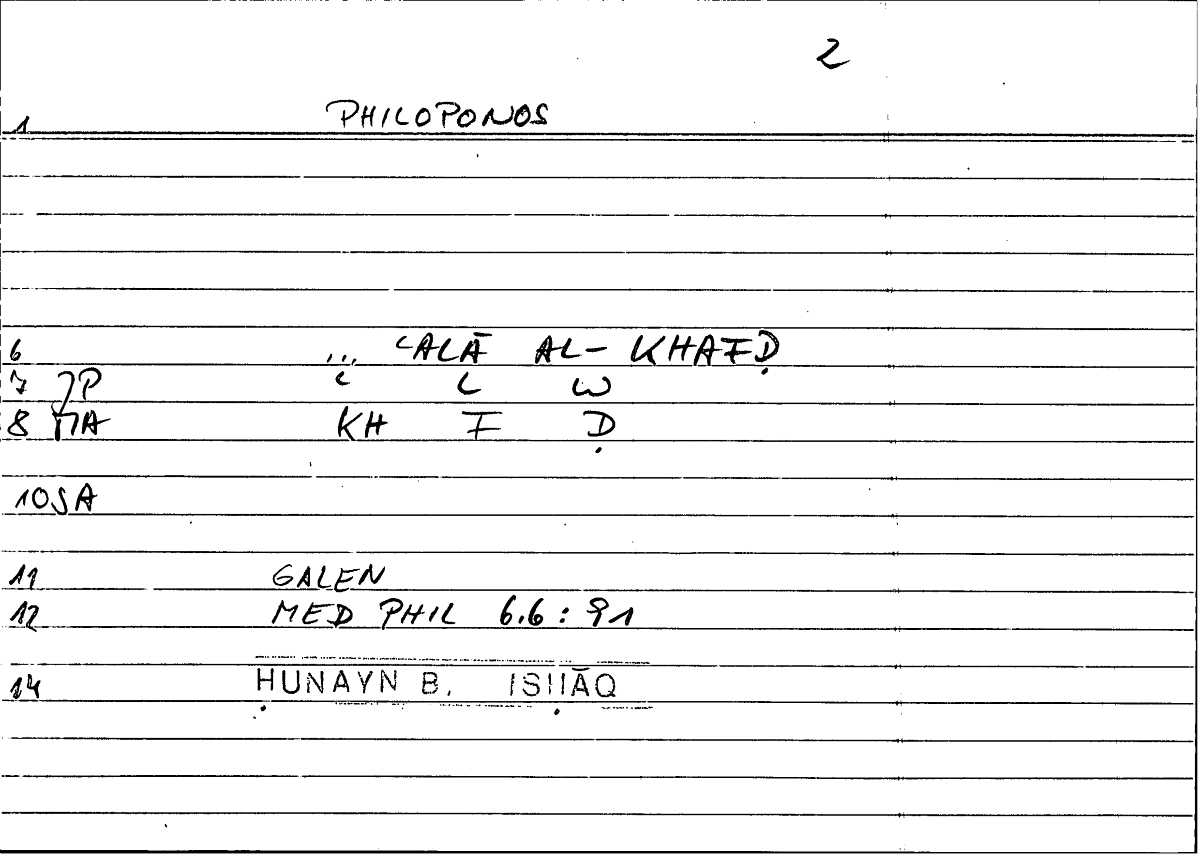 2
1 PHILOPONOS
6 ... ʿALĀ AL-KHAFḌ
7 JP ʿ L W
8 ΠA KH F Ḍ
10 SA
11 GALEN
12 MED PHIL 6.6: 91
14 ḤUNAYN B. ISḤĀQ